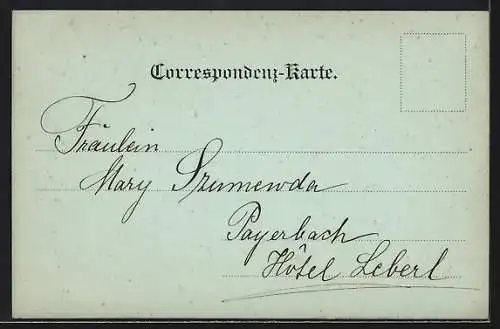 Correspondenz-Karte.
Fräulein
Mary Szumewda
Payerbach
Hôtel Leberl